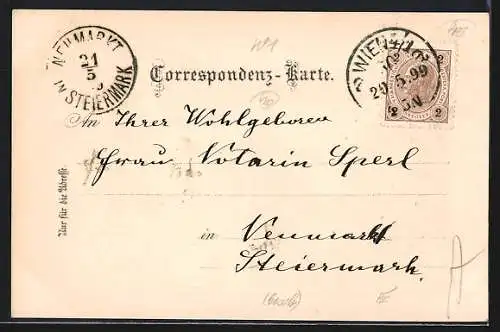 NEUMARKT
21
5
IN STEIERMARK
WIEN
20.5.99
5 N
2 2
Correspondenz-Karte.
An Ihrer Wohlgeboren
Frau Notarin Sperl
in Neumarkt
Steiermark.
Nur für die Adresse.